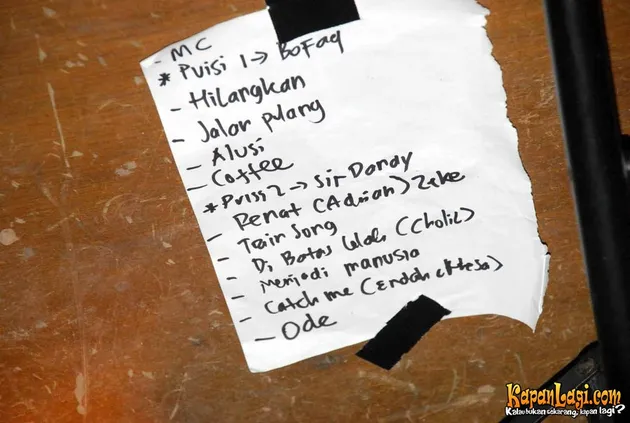 - MC
* Puisi 1 -> Bofag
- Hilangkan
- Jalor pulang
- Alusi
- Coffee
* Puisi 2 -> Sir Dandy
- Penat (Adrian) Zeke
- Train Song
- Di Batas Lelah (Cholil)
- Menjadi manusia
- Catch me (endah & Resa)
- Ode
KapanLagi.com
Kalau bukan sekarang, kapan lagi?